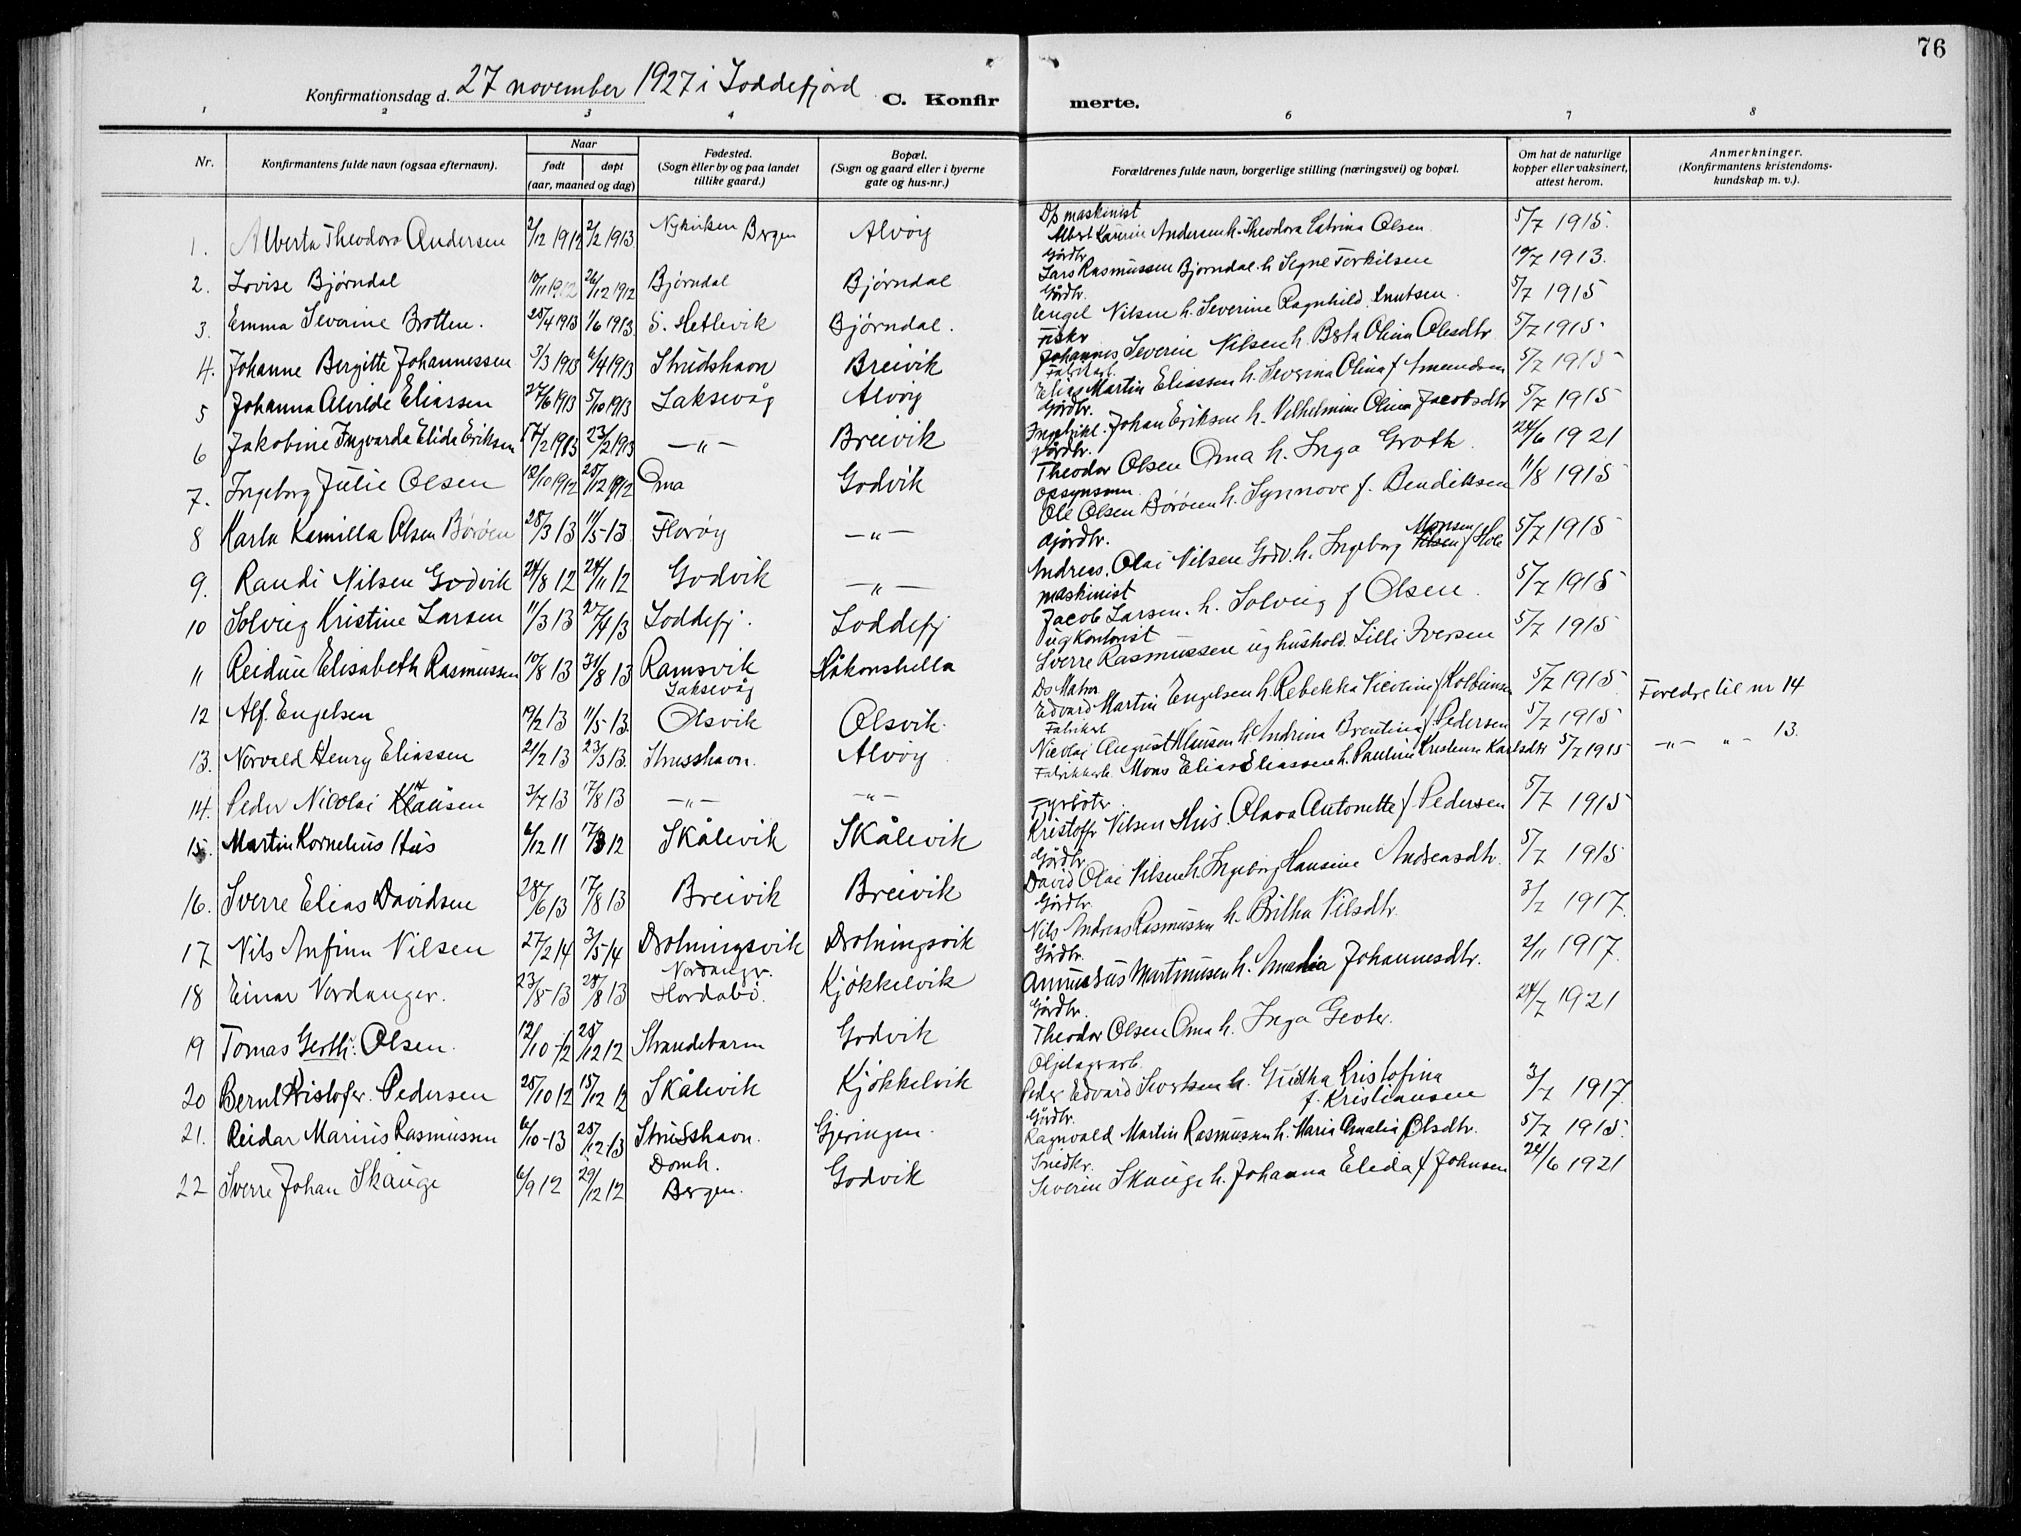 76
Konfirmationsdag d. 27 november 1927 i Loddefjord C. Konfir merte.
1 2 3 4 6 7 8
Nr. Konfirmantens fulde navn (ogsaa efternavn). Naar født døpt (aar, maaned og dag) Fødested. (Sogn eller by og paa landet tillike gaard.) Bopæl. (Sogn og gaard eller i byerne gate og hus-nr.) Forældrenes fulde navn, borgerlige stilling (næringsvei) og bopæl. Om hat de naturlige kopper eller vaksinert, attest herom. Anmerkninger. (Konfirmantens kristendoms-kundskap m. v.).
1. Alberta Theodora Andersen 2/12 1912 2/2 1913 Nykirken Bergen Alvøy D/s maskinist Albert Andersen h. Theodora Catrina Olsen 5/7 1915.
2. Lovise Bjørndal 10/11 1912 26/12 1912 Bjørndal Bjørndal Gårdbr. Lars Rasmussen Bjørndal h. Signe Torkilsen 10/7 1913.
3. Emma Severine Brotten. 25/4 1913 1/6 1913 S. Hetlevik Bjørndal. Gårdbr. Engel Nilsen h. Severine Ragnhild Knutsen. 5/7 1915
4. Johanne Bergitte Johannessen 3/3 1913 6/4 1913 Strudshavn Breivik Fisker Johannes Severin Nilsen h. Berta Olina Olesdtr 5/7 1915
5 Johanna Alvilde Eliassen 27/6 1913 5/10 1913 Laksevåg Alvøy Fabrikarb. Elias Martin Eliassen h. Severina Olina f Amundsen 5/7 1915
6 Jakobine Ingvarda Elida Eriksen 14/2 1913 23/2 1913 —"— Breivik Gårdbr. Johan Eriksen h. Vilhelmine Olina Jacobsdtr 5/7 1915
7. Ingeborg Julie Olsen 12/10 1912 25/12 1912 Oma Godvik gårdbr. Theodor Olsen Oma h. Inga Groth. 24/6 1921
8 Karla Kamilla Olsen Børøen 28/3 13 11/5-13 Florøy —"— opsynsm. Ole Olsen Børøen h. Synnove f. Bendiksen 11/8 1915
9. Randi Nilsen Godvik 24/8 12 24/11 12 Godvik —"— Gjørdbr. Andreas Olai Nilsen Godv. h. Ingeborg Monsen f Hole 5/7 1915
10 Solveig Kristine Larsen 11/3 13 27/4 13 Loddefj. Loddefj maskinist Jacob Larsen. h. Solveig f Olsen. 5/7 1915
11 Reidun Elisabeth Rasmussen 10/8 13 31/8 13 Ramsvik Laksevåg Håkonshella ug kontorist Sverre Rasmussen ug hushold. Lilli Iversen 5/7 1915
12 Alf Engelsen 19/2 13 11/5 13. Olsvik Olsvik. Ds Matr Edvard Martin Engelsen h. Rebekka Nicoline f Kolbeinsen 5/7 1915 Foreldre til nr 14
13. Norvald Henry Eliassen 21/2 13 23/3 13. Strusshavn. Alvøy Fabrikarb Nicolai August Klausen h. Andrina Brentina f. Pedersen 5/7 1915 —"— "— 13.
14. Peder Nicolai Klausen 3/7 13 17/8 13 —"— —"— Fabrikkarb. Mons Elias Eliassen h. Pauline Kristense Karlsdtr 5/7 1915
15. Martin Kornelius Hus 6/12 11 17/3 12 Skålevik Skålevik Fyrbøter Kristoffr Nilsen Hus. Olava Antonette f. Pedersen 5/7 1915
16. Sverre Elias Davidsen 28/6 13 17/8 13 Breivik Breivik Gårdbr. David Olai Nilsen h. Ingeborg Hansine Andreasdtr. 5/7 1915
17 Nils Anfinn Nilsen 27/2 14 3/5 14 Drotningsvik Drotningsvik Gårdbr. Nils Andreas Rasmusen h. Britha Nilsdtr. 3/7 1917.
18 Einar Nordanger. 23/5-13 28/8 13 Nordangr. Hordabø. Kjøkkelvik Gårdbr. Martinusen h. Amalia Johannesdtr. 2/11 1917.
19 Tomas Olsen. 12/10-12 25/12 12 Strandebarm Godvik Gårdbr. Theodor Olsen Oma h. Inga 24/7 1921
20 Bernt Kristofer. Pedersen 25/10 12 15/12 12 Skålevik Kjøkkelvik Oljelagrarb. Peder Edvard Sivertsen h. Kristofina f. Kristiansen 3/7 1917.
21. Reidar Marius Rasmussen 6/10-13 25/12 13 Strusshavn. Gjeringen. Gårdbr. Ragnvald Martin Rasmusen h. Maria Amalia Olsdtr. 5/7 1915.
22 Sverre Johan Skauge 6/9 12 29/12 12 Domk. Bergen. Godvik Snedkr. Severin Skauge h. Johanna Elida f Johnsen 24/6 1921